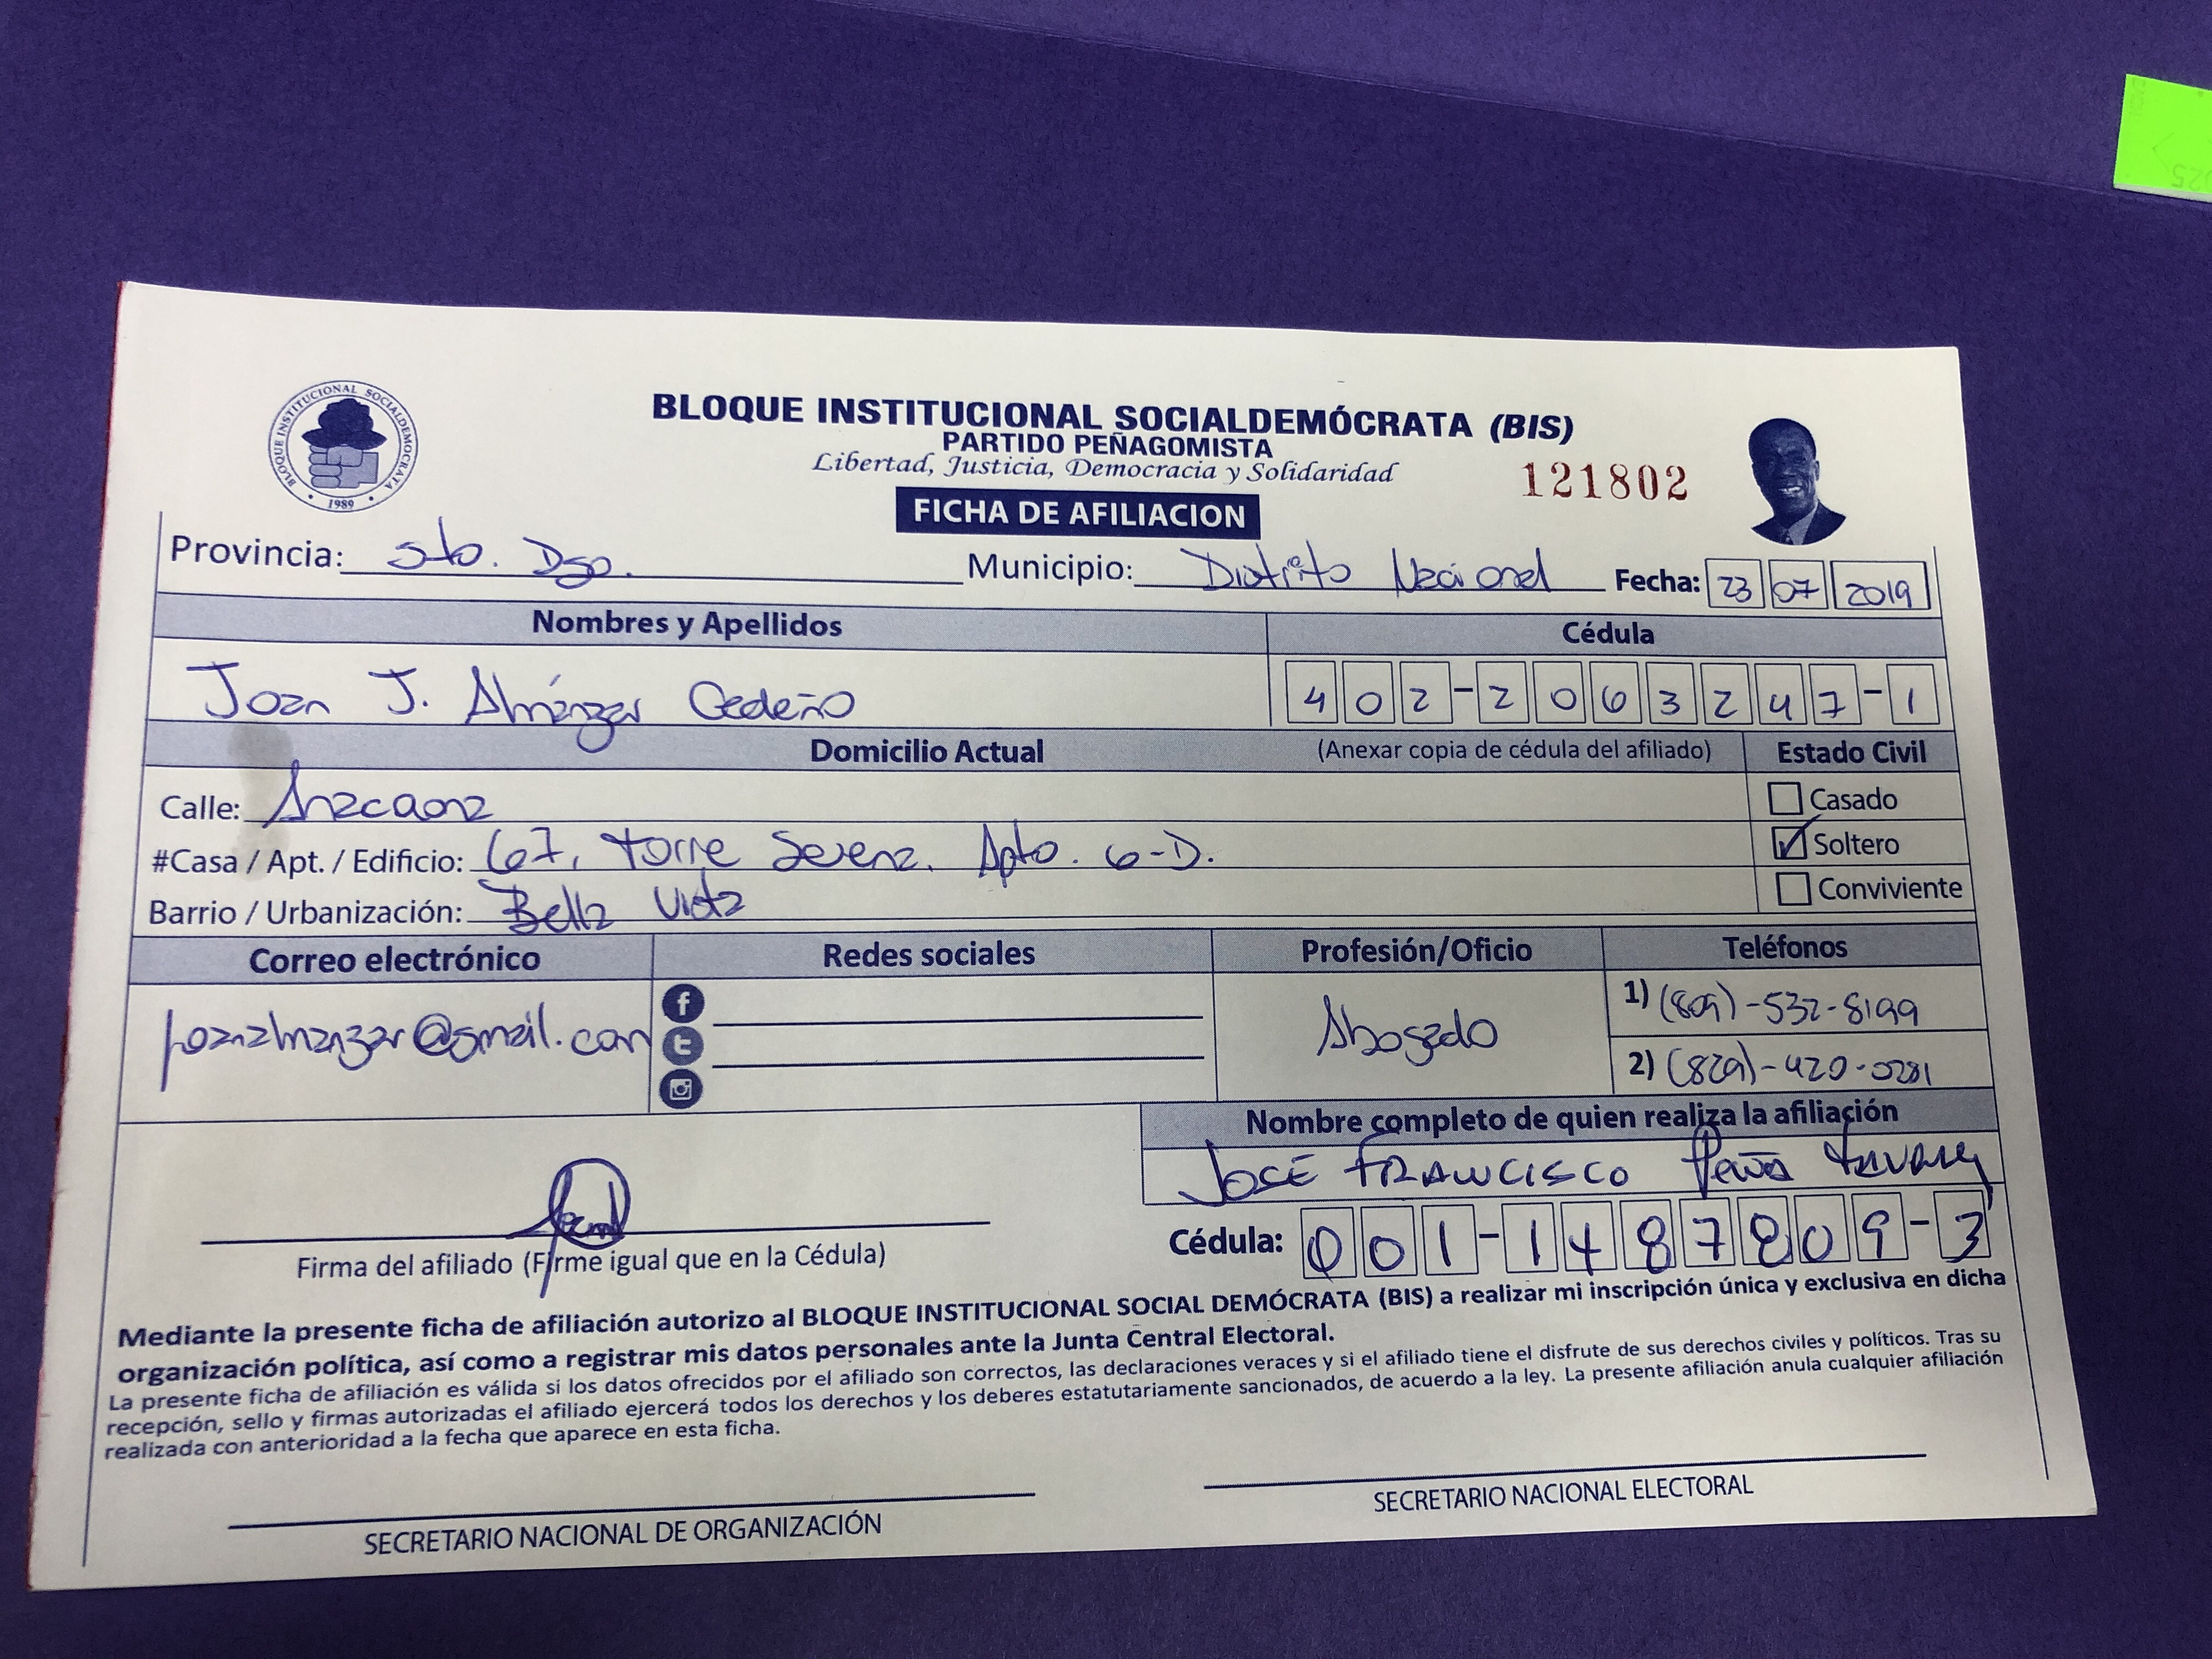 BLOQUE INSTITUCIONAL SOCIALDEMOCRATA
1989
BLOQUE INSTITUCIONAL SOCIALDEMÓCRATA (BIS)
PARTIDO PEÑAGOMISTA
Libertad, Justicia, Democracia y Solidaridad
121802
FICHA DE AFILIACION
Provincia: Sto. Dgo. Municipio: Distrito Nacional Fecha: 23 07 2019
Nombres y Apellidos Cédula
Joan J. Almánzar Cedeño 402-2063247-1
Domicilio Actual (Anexar copia de cédula del afiliado) Estado Civil
Calle: Anacaona Casado
#Casa / Apt. / Edificio: 67, torre Serena. Apto. 6-D. Soltero
Barrio / Urbanización: Bella Vista Conviviente
Correo electrónico Redes sociales Profesión/Oficio Teléfonos
joanalmanzar@gmail.com Abogado 1) (809)-532-8199
2) (829)-420-0281
Nombre completo de quien realiza la afiliación
JOSÉ FRANCISCO Peña Tavarez
Cédula: 001-1487809-3
Firma del afiliado (Firme igual que en la Cédula)
Mediante la presente ficha de afiliación autorizo al BLOQUE INSTITUCIONAL SOCIAL DEMÓCRATA (BIS) a realizar mi inscripción única y exclusiva en dicha
organización política, así como a registrar mis datos personales ante la Junta Central Electoral.
La presente ficha de afiliación es válida si los datos ofrecidos por el afiliado son correctos, las declaraciones veraces y si el afiliado tiene el disfrute de sus derechos civiles y políticos. Tras su
recepción, sello y firmas autorizadas el afiliado ejercerá todos los derechos y los deberes estatutariamente sancionados, de acuerdo a la ley. La presente afiliación anula cualquier afiliación
realizada con anterioridad a la fecha que aparece en esta ficha.
SECRETARIO NACIONAL DE ORGANIZACIÓN SECRETARIO NACIONAL ELECTORAL